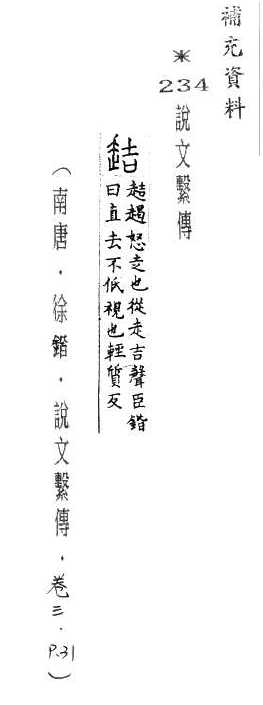 補充資料
＊
234
說文繫傳
趌
趌趨怒走也從走吉聲臣鍇
曰直去不低視也輕質反
（南唐．徐鍇．說文繫傳．卷三．P.31）